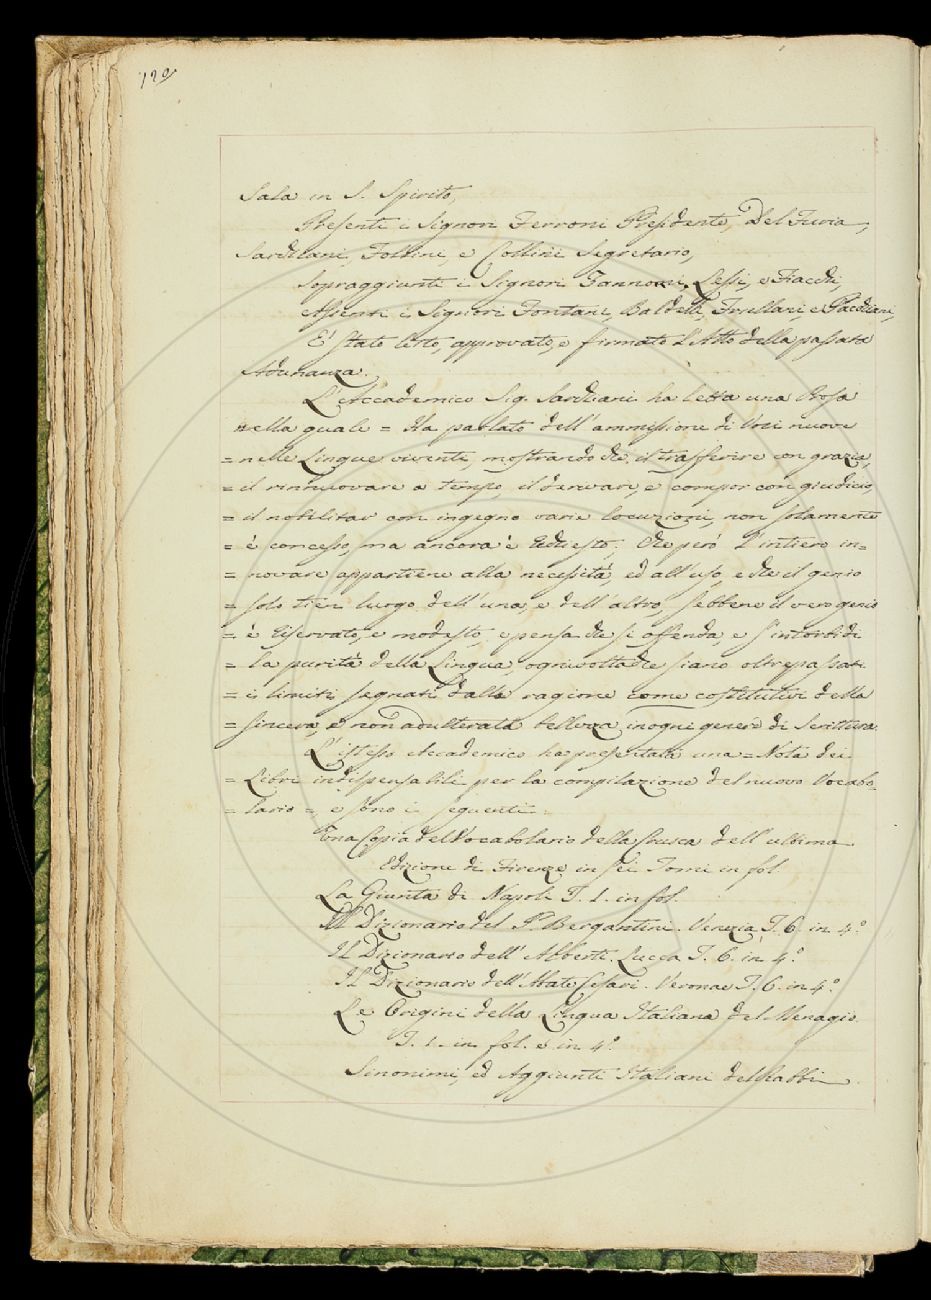 120
Sala in S. Spirito,
Presenti i Signori Ferroni Presidente, Del Furia,
Sarchiani, Follini e Collini Segretario,
Sopraggiunti i Signori Zannoni, Lessi, e Fiacchi,
Assenti i Signori Fontani, Baldelli, Frullani e Pacchiani,
E' stato letto, approvato, e firmato l'Atto della passata
Adunanza.
L'Accademico Sig. Sarchiani ha letta una Prosa
nella quale = Ha parlato dell'ammissione di Voci nuove
= nelle Lingue viventi, mostrando che il trasferire con grazia,
= il rinnuovare a tempo, il derivare, e compor con giudicio,
= il nobilitar con ingegno varie locuzioni, non solamente
= è concesso, ma ancora è richiesto. Che però l'intiero in=
= novare appartiene alla necessità, ed all'uso, e che il genio
= solo tien luogo dell'una, e dell'altro, sebbene il vero genio
= è riservato, e modesto, e pensa che si offenda, e s'intorbidi
= la purità della Lingua, ognivoltache siano oltrepassati
= i limiti segnati dalla ragione come costitutivi della
= sincera, e non adulterata bellezza in ogni genere di Scrittura
L'istesso Accademico ha presentata una = Nota dei
= Libri indispensabili per la compilazione del nuovo Vocabo=
= lario = e sono i seguenti:
Una Copia del Vocabolario della Crusca dell'ultima
Edizione di Firenze in sei Tomi in fol.
La Giunta di Napoli T. 1. in fol.
Il Dizionario del P. Bergantini. Venezia T. 6. in 4.º
Il Dizionario dell'Alberti. Lucca T. 6. in 4.º
Il Dizionario dell'Abate Cesari. Verona T. 6. in 4.º
Le Origini della Lingua Italiana del Menagio
T. 1. in fol. e in 4.º
Sinonimi, ed Aggiunti Italiani del Rabbi